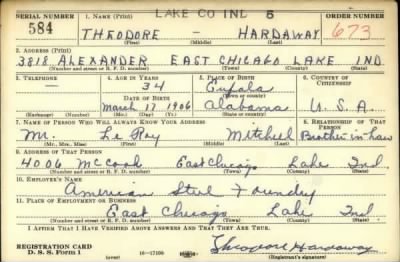 LAKE CO IND 6
SERIAL NUMBER 1. NAME (Print) ORDER NUMBER
584 THEODORE — HARDAWAY 673
(First) (Middle) (Last)
2. ADDRESS (Print)
3818 ALEXANDER EAST CHICAGO LAKE IND.
(Number and street or R. F. D. number) (Town) (County) (State)
3. TELEPHONE 4. AGE IN YEARS 5. PLACE OF BIRTH 6. COUNTRY OF CITIZENSHIP
— 34 Eufala
DATE OF BIRTH (Town or county)
March 17 1906 Alabama U. S. A.
(Exchange) (Number) (Mo.) (Day) (Yr.) (State or country)
7. NAME OF PERSON WHO WILL ALWAYS KNOW YOUR ADDRESS 8. RELATIONSHIP OF THAT PERSON
Mr. Le Roy Mitchell Brother in law
(Mr., Mrs., Miss) (First) (Middle) (Last)
9. ADDRESS OF THAT PERSON
4006 McCook East Chicago Lake Ind
(Number and street or R. F. D. number) (Town) (County) (State)
10. EMPLOYER'S NAME
American Steel Foundry
11. PLACE OF EMPLOYMENT OR BUSINESS
East Chicago Lake Ind
(Number and street or R. F. D. number) (Town) (County) (State)
I AFFIRM THAT I HAVE VERIFIED ABOVE ANSWERS AND THAT THEY ARE TRUE.
REGISTRATION CARD
D. S. S. Form 1 16—17105 Theodore Hardaway
(Registrant's signature)